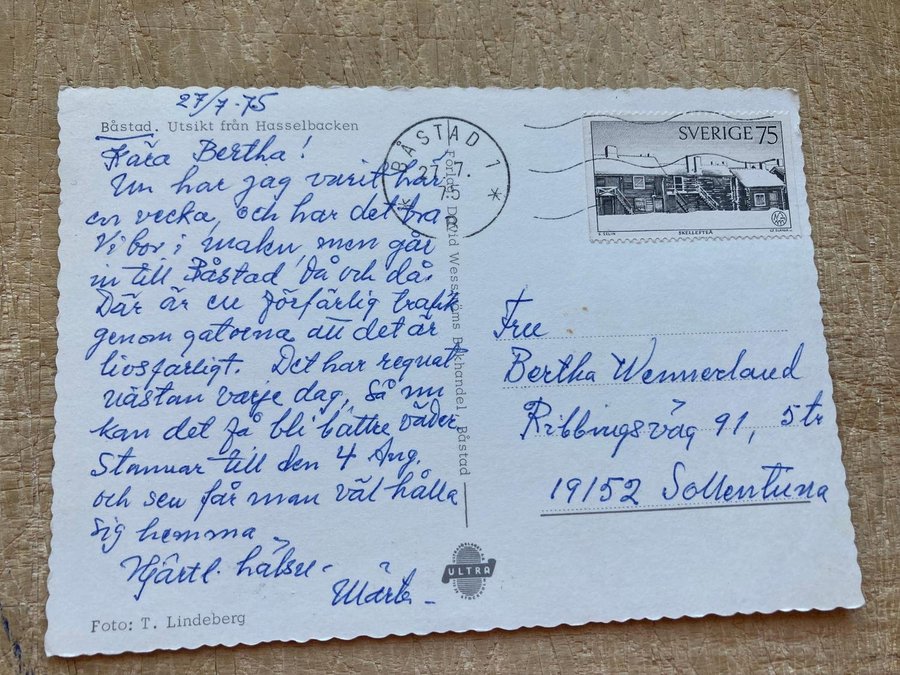 27/7-75
Båstad. Utsikt från Hasselbacken
Kära Bertha!
Nu har jag varit här
en vecka, och har det bra
Vi bor i maku, men går
in till Båstad då och då.
Där är en förfärlig trafik
genom gatorna att det är
livsfarligt. Det har regnat
nästan varje dag, så nu
kan det få bli bättre väder
Stannar till den 4 Aug.
och sen får man väl hålla
sig hemma
Hjärtl. hälsn-
Märta-
Foto: T. Lindeberg
Förlag: David Wesströms Bokhandel, Båstad
ULTRA
BÅSTAD 1
27.7.
75
SVERIGE 75
SKELLEFTEÅ
Fru
Bertha Wennerlaud
Ribbingsväg 91, 5 tr
19152 Sollentuna